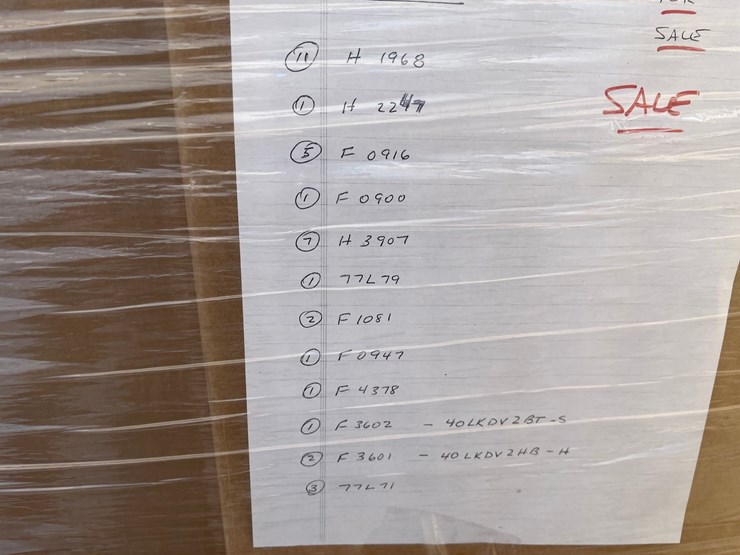 SALE
11 H 1968
1 H 2247
SALE
5 F 0916
1 F 0900
7 H 3907
1 77L79
2 F 1081
1 F 0947
1 F 4378
1 F 3602 - 40LKDV2BT-S
2 F 3601 - 40LKDV2HB-H
3 77L71